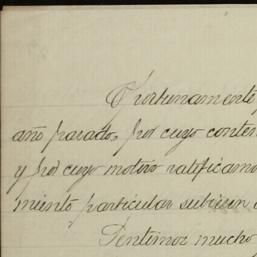 Oportunamente
año pasado, por cuyo conten
y por cuyo motivo ratificamo
miento particular subieren
Sentimos mucho